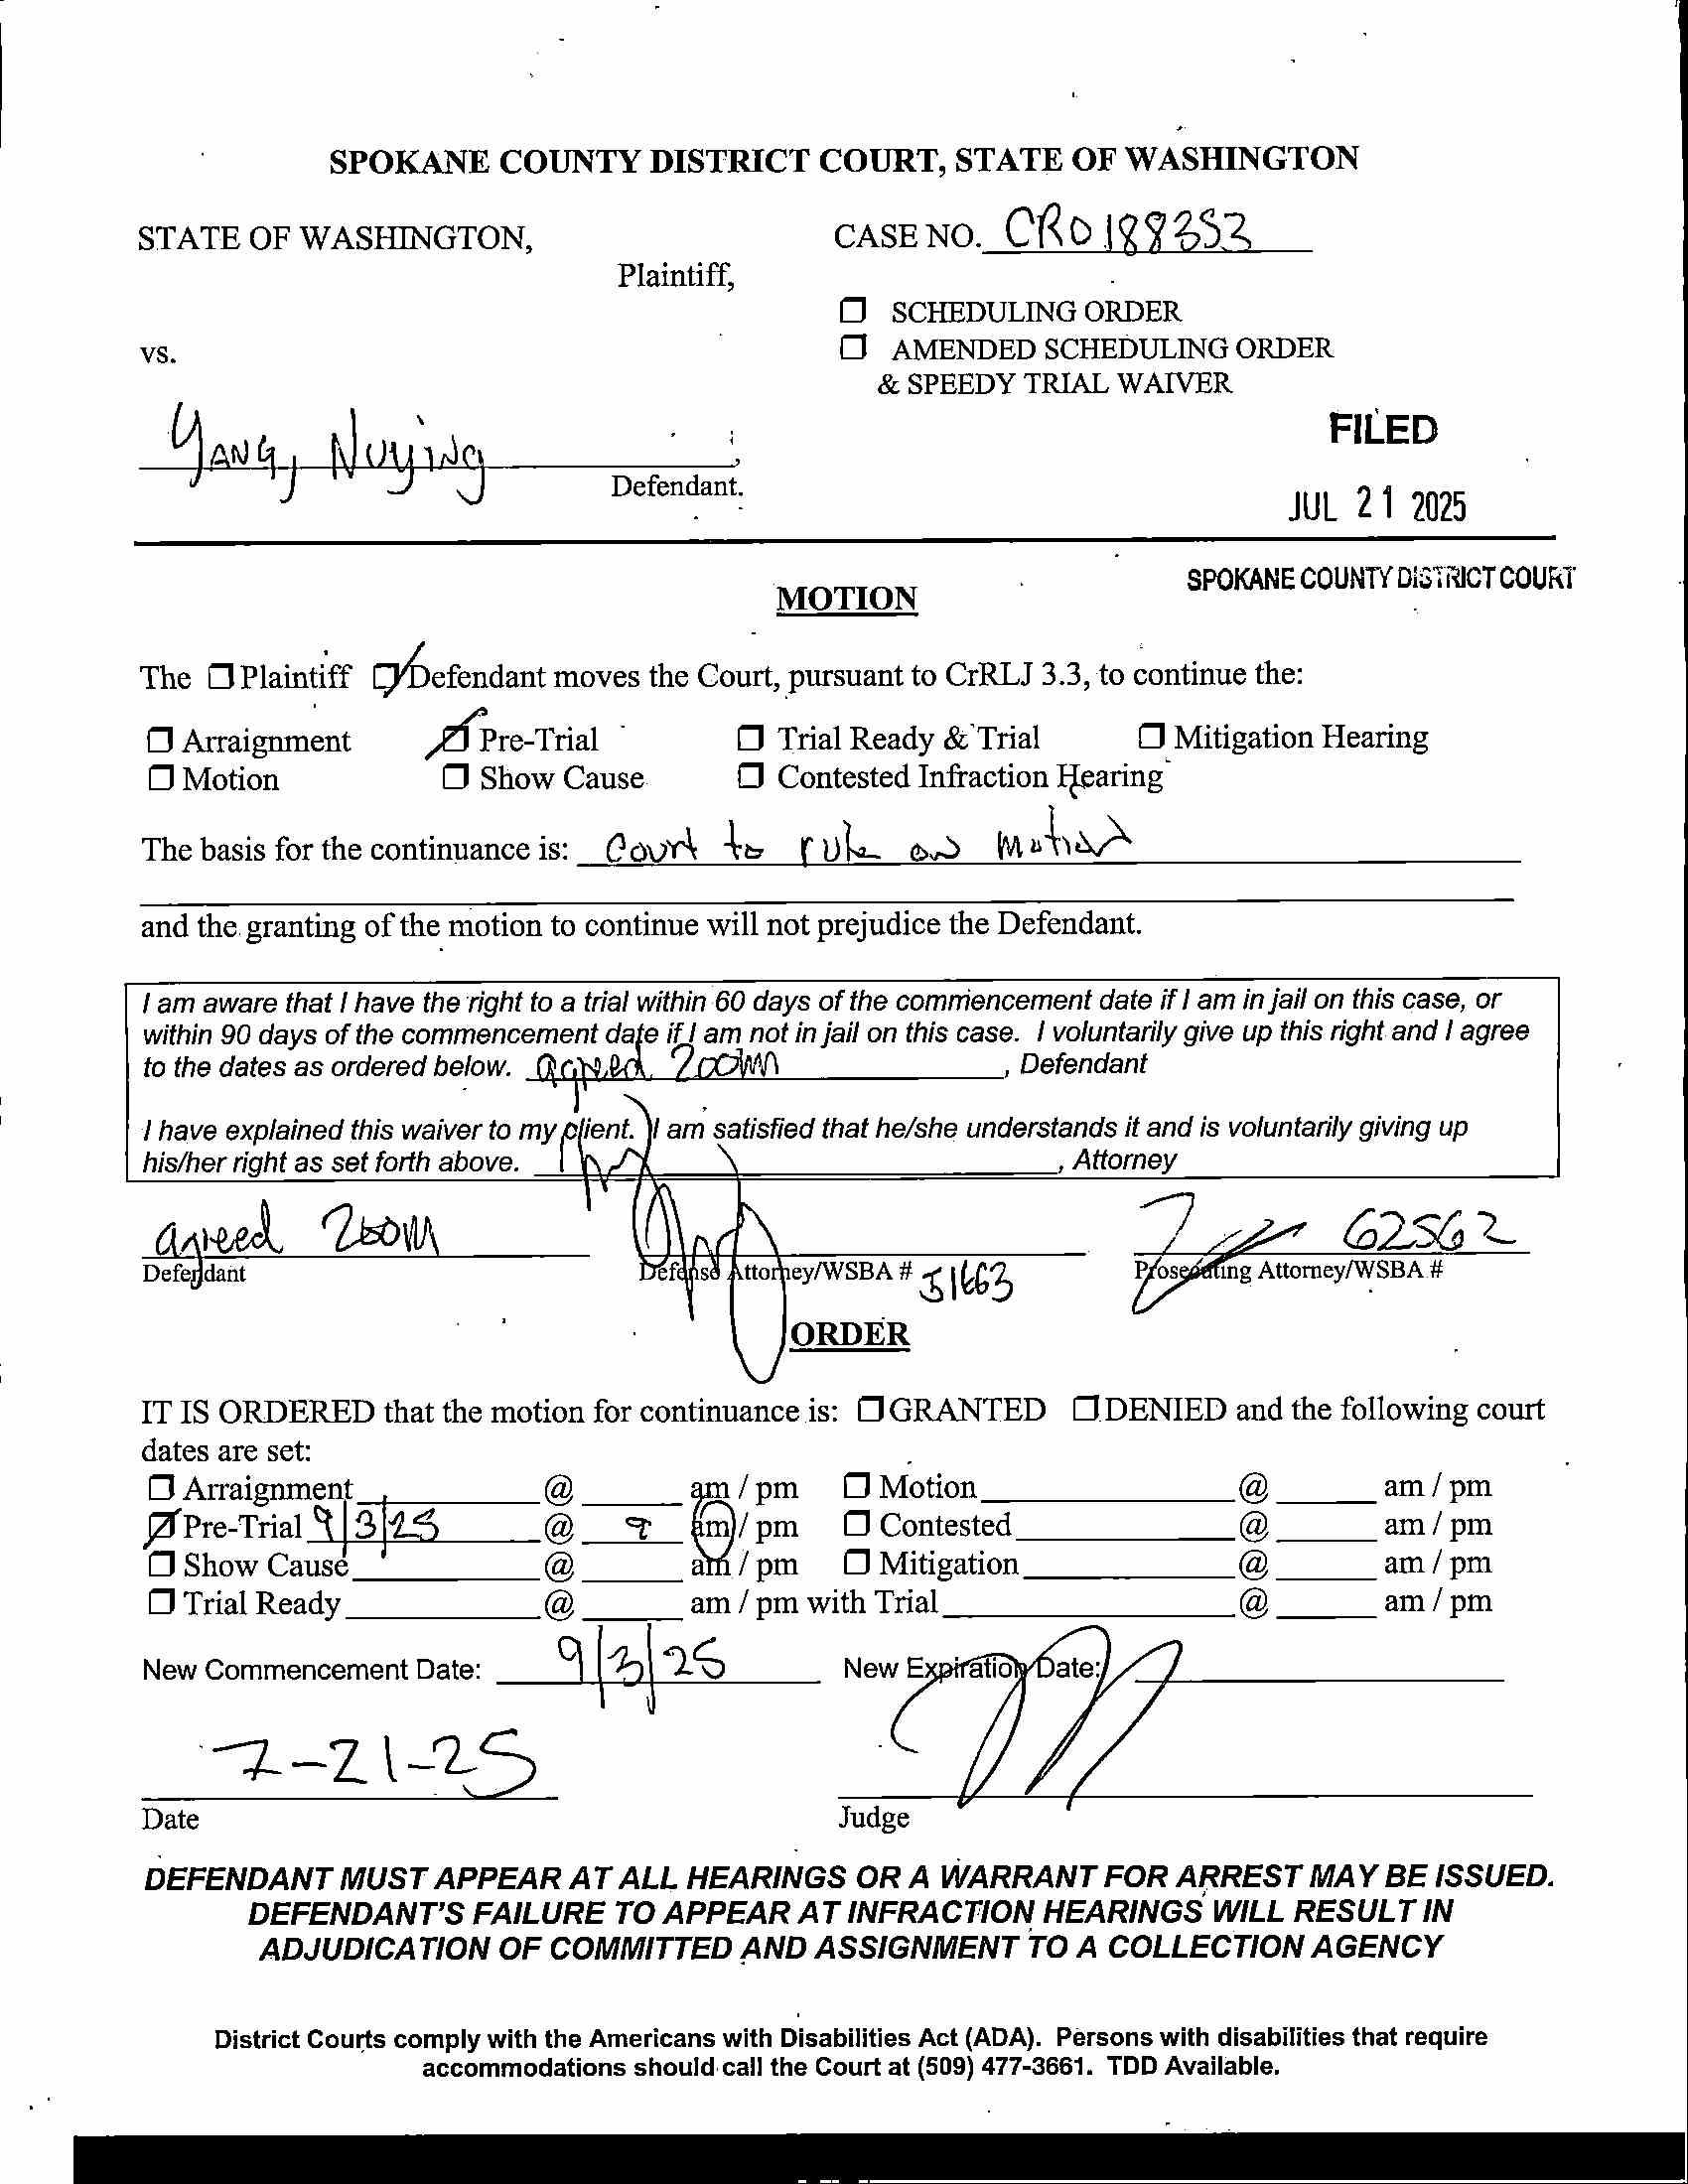 SPOKANE COUNTY DISTRICT COURT, STATE OF WASHINGTON
STATE OF WASHINGTON,
Plaintiff,
vs.
Yang, Nuying
Defendant.
CASE NO. CR0188353
☐ SCHEDULING ORDER
☐ AMENDED SCHEDULING ORDER
& SPEEDY TRIAL WAIVER
FILED
JUL 21 2025
SPOKANE COUNTY DISTRICT COURT
MOTION
The ☐ Plaintiff ☑ Defendant moves the Court, pursuant to CrRLJ 3.3, to continue the:
☐ Arraignment ☑ Pre-Trial ☐ Trial Ready & Trial ☐ Mitigation Hearing
☐ Motion ☐ Show Cause ☐ Contested Infraction Hearing
The basis for the continuance is: Court to rule on motion
and the granting of the motion to continue will not prejudice the Defendant.
I am aware that I have the right to a trial within 60 days of the commencement date if I am in jail on this case, or
within 90 days of the commencement date if I am not in jail on this case. I voluntarily give up this right and I agree
to the dates as ordered below. agreed Zoom, Defendant
I have explained this waiver to my client. I am satisfied that he/she understands it and is voluntarily giving up
his/her right as set forth above. , Attorney
agreed Zoom 62562
Defendant Defense Attorney/WSBA # 51663 Prosecuting Attorney/WSBA #
ORDER
IT IS ORDERED that the motion for continuance is: ☐ GRANTED ☐ DENIED and the following court
dates are set:
☐ Arraignment @ am / pm ☐ Motion @ am / pm
☑ Pre-Trial 9/3/25 @ 9 am / pm ☐ Contested @ am / pm
☐ Show Cause @ am / pm ☐ Mitigation @ am / pm
☐ Trial Ready @ am / pm with Trial @ am / pm
New Commencement Date: 9/3/25 New Expiration Date:
7-21-25
Date Judge
DEFENDANT MUST APPEAR AT ALL HEARINGS OR A WARRANT FOR ARREST MAY BE ISSUED.
DEFENDANT'S FAILURE TO APPEAR AT INFRACTION HEARINGS WILL RESULT IN
ADJUDICATION OF COMMITTED AND ASSIGNMENT TO A COLLECTION AGENCY
District Courts comply with the Americans with Disabilities Act (ADA). Persons with disabilities that require
accommodations should call the Court at (509) 477-3661. TDD Available.